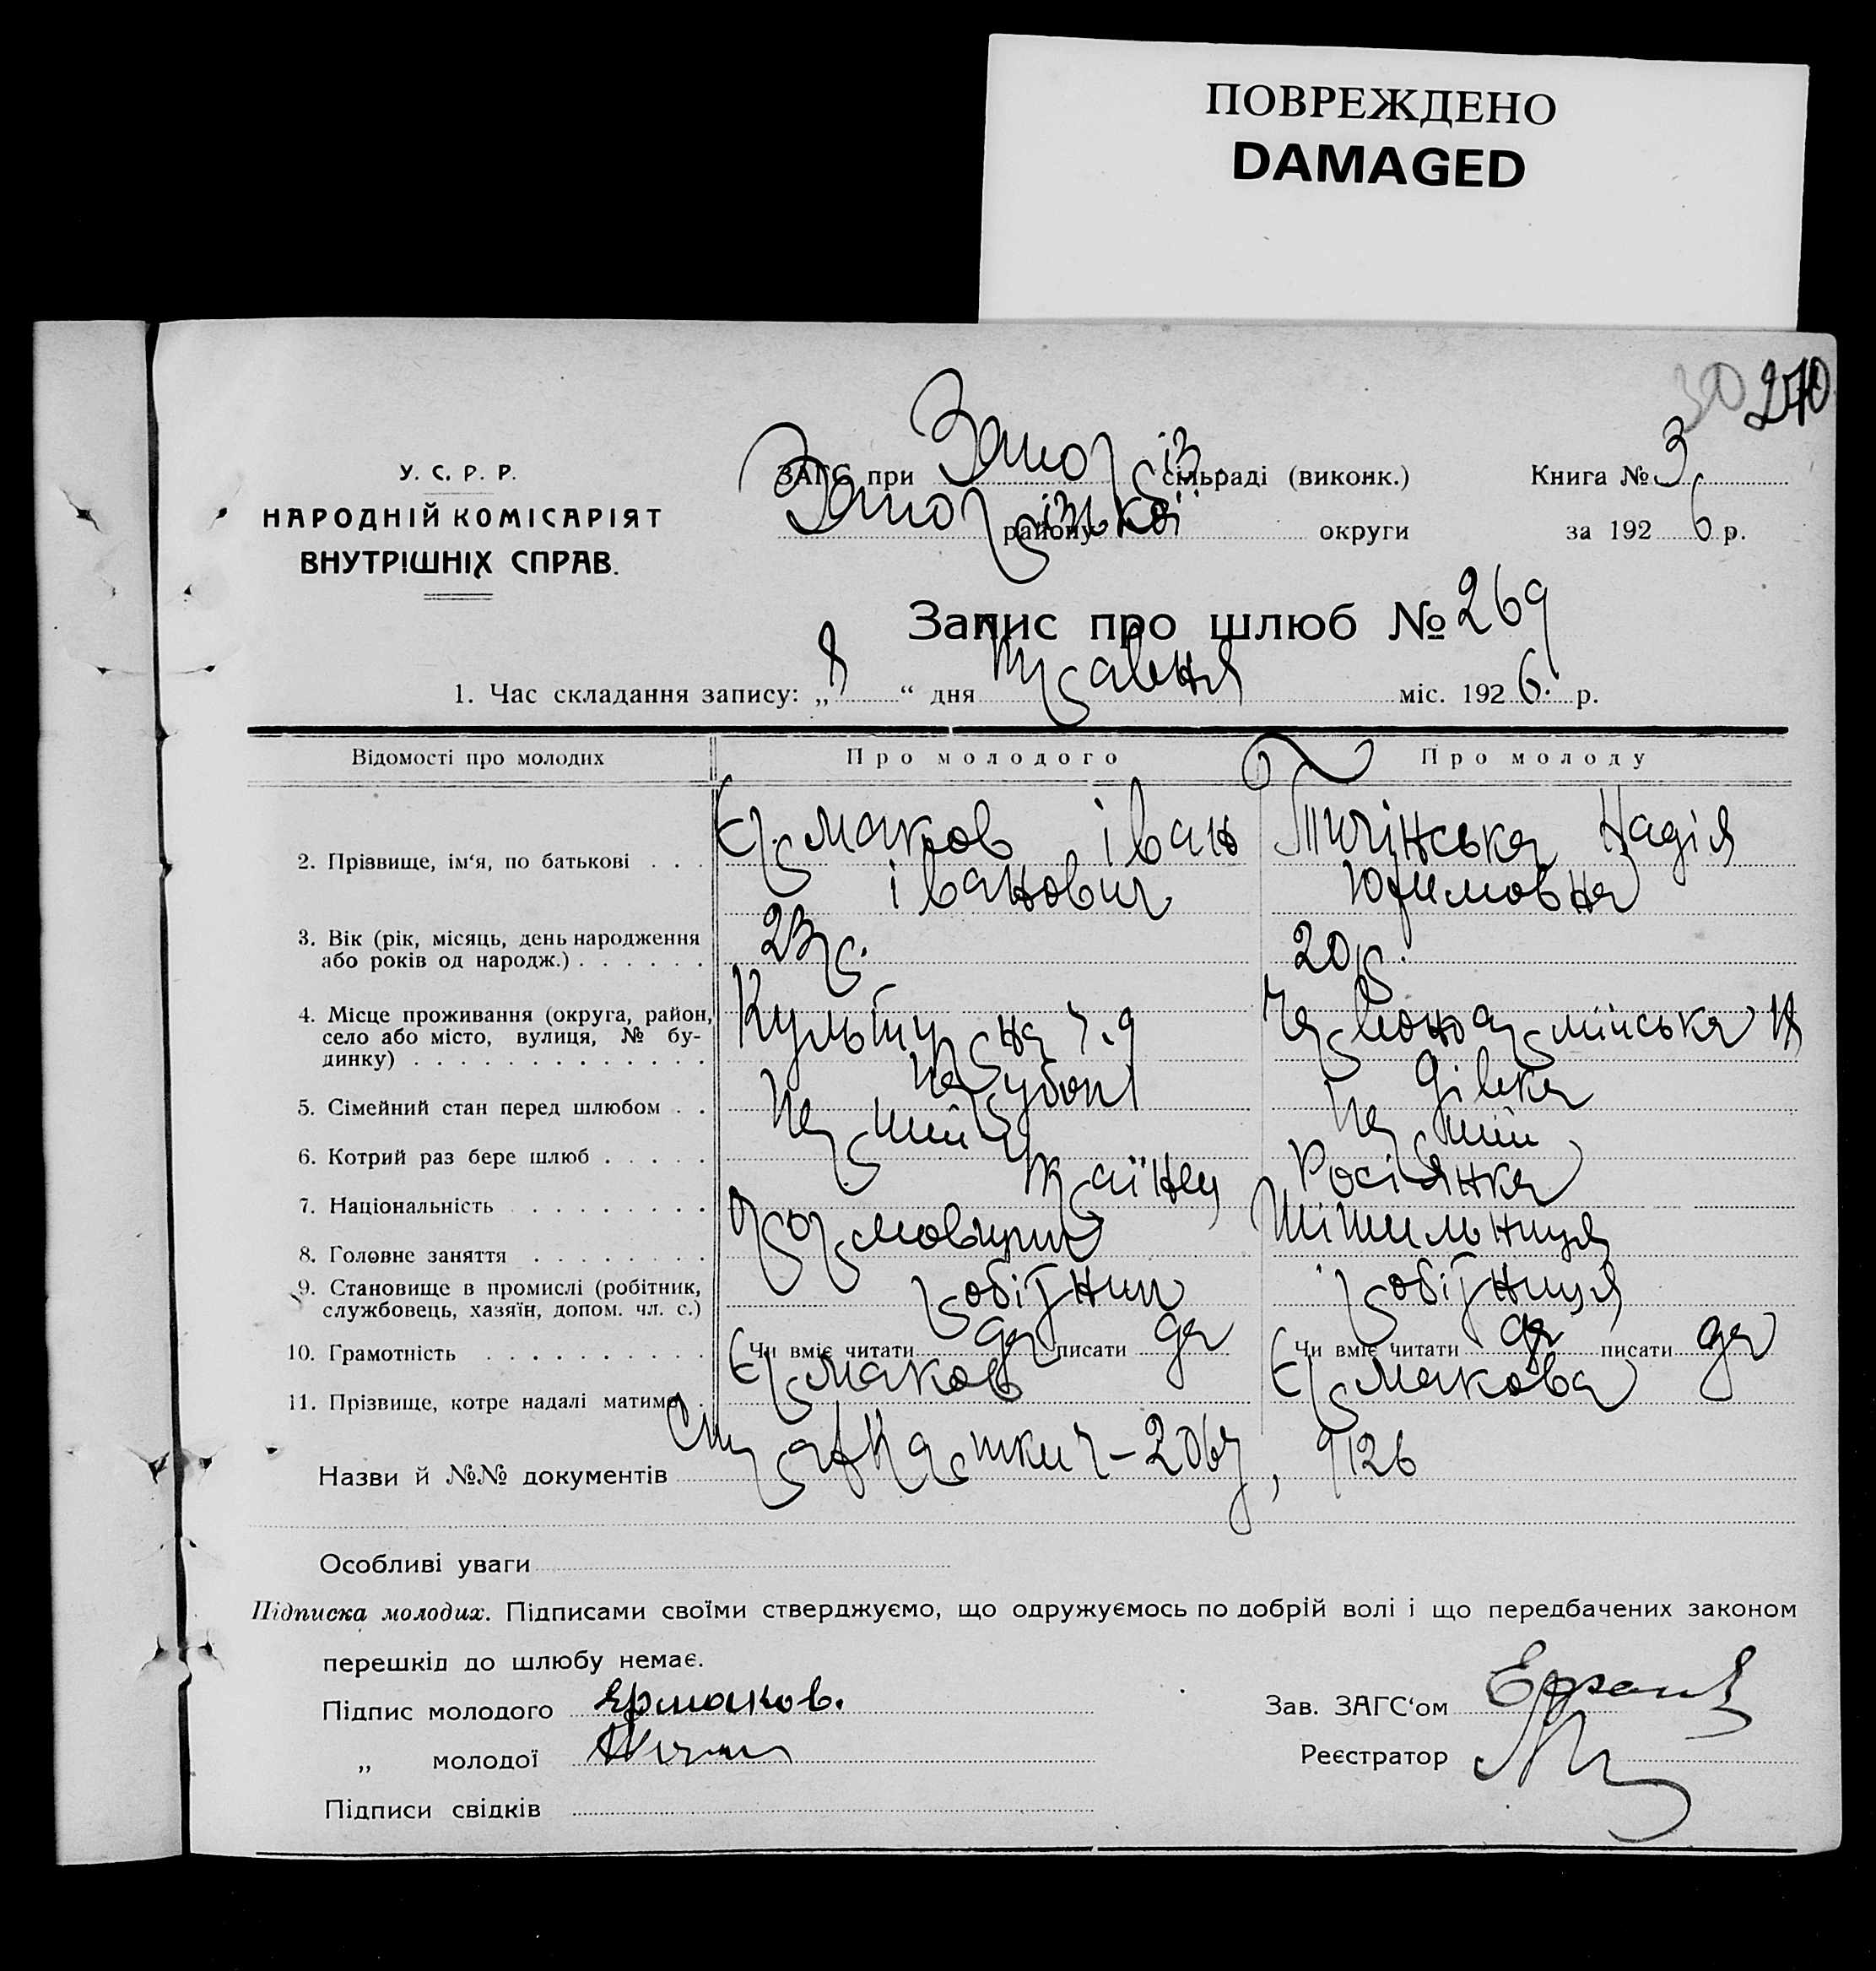 ПОВРЕЖДЕНО
DAMAGED
30 270
У. С. Р. Р.
НАРОДНІЙ КОМІСАРІЯТ
ВНУТРІШНІХ СПРАВ.
ЗАГС при Запоріз. сільраді (виконк.) Книга № 3
Запорізької району округи за 1926 р.
Запис про шлюб № 269
1. Час складання запису: „8“ дня травня міс. 1926. р.
Відомості про молодих Про молодого Про молоду
2. Прізвище, ім‘я, по батькові . . . Єрмаков іван Тичінська Надія
іванович Юхимовна
3. Вік (рік, місяць, день народження 23 р. 20 р.
або років од народж.) . . . . . .
4. Місце проживання (округа, район,
село або місто, вулиця, № бу- Культурна ч. 9 Червоноармійська
динку) . . . . . . . . . . . . .
5. Сімейний стан перед шлюбом . . парубок дівка
6. Котрий раз бере шлюб . . . . . перший перший
7. Національність . . . . . . . . . Українец Росіянка
8. Головне заняття . . . . . . . .
9. Становище в промислі (робітник, робітник робітниця
службовець, хазяїн, допом. чл. с.)
10. Грамотність . . . . . . . . . . Чи вміє читати да писати да Чи вміє читати да писати да
11. Прізвище, котре надалі матиме . Єрмаков Єрмакова
Назви й №№ документів 2067, 9126
Особливі уваги
Підписка молодих. Підписами своїми стверджуємо, що одружуємось по добрій волі і що передбачених законом
перешкід до шлюбу немає.
Підпис молодого Ермаков. Зав. ЗАГС‘ом
„ молодої Реєстратор
Підписи свідків